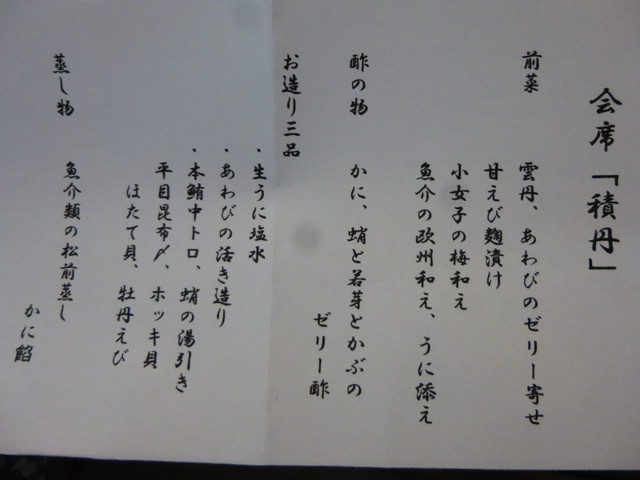 会席「積丹」
前菜
雲丹、あわびのゼリー寄せ
甘えび麹漬け
小女子の梅和え
魚介の欧州和え、うに添え
酢の物
かに、蛸と若芽とかぶの
ゼリー酢
お造り三品
・生うに塩水
・あわびの活き造り
・本鮪中トロ、蛸の湯引き
平目昆布〆、ホッキ貝
ほたて貝、牡丹えび
蒸し物
魚介類の松前蒸し
かに餡